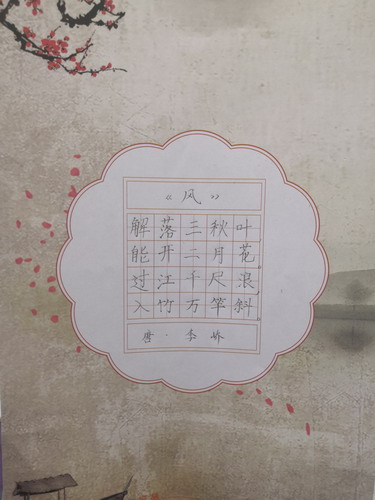 《风》
解落三秋叶
能开二月花
过江千尺浪
入竹万竿斜
唐·李峤